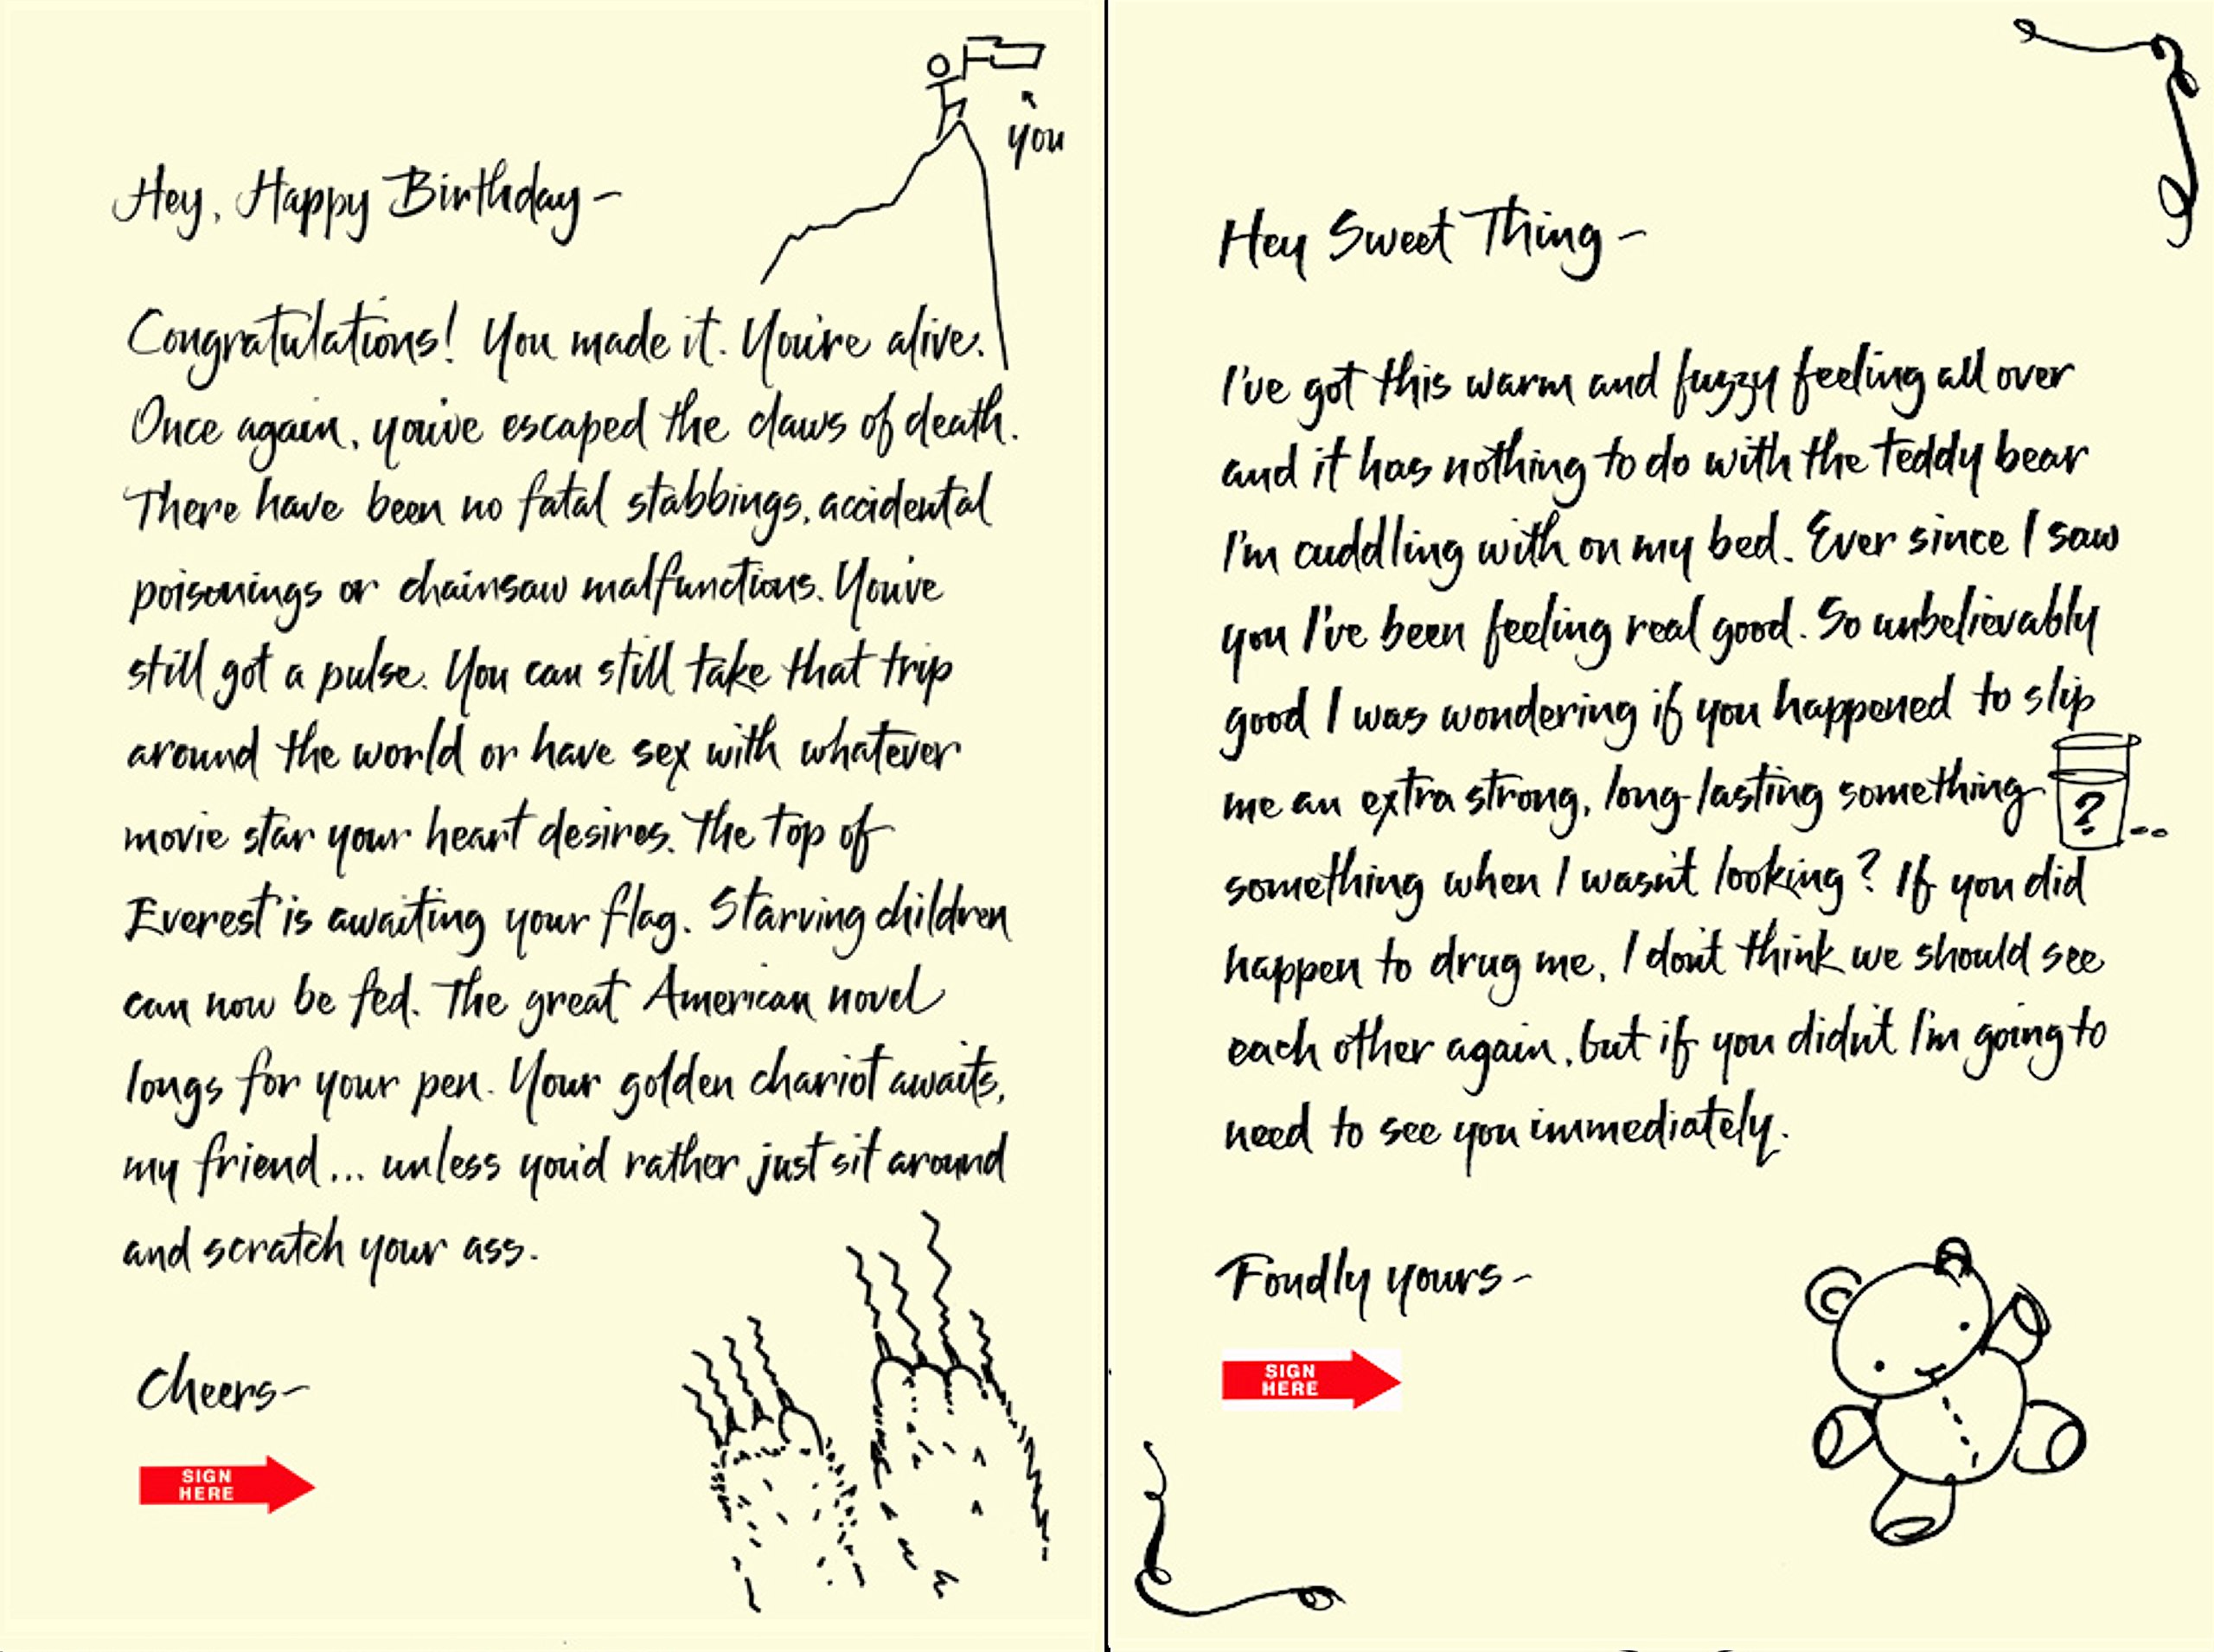 you
Hey, Happy Birthday-
Congratulations! You made it. You're alive.
Once again, you've escaped the claws of death.
There have been no fatal stabbings, accidental
poisonings or chainsaw malfunctions. You've
still got a pulse. You can still take that trip
around the world or have sex with whatever
movie star your heart desires. The top of
Everest is awaiting your flag. Starving children
can now be fed. The great American novel
longs for your pen. Your golden chariot awaits,
my friend... unless you'd rather just sit around
and scratch your ass.
Cheers-
SIGN
HERE
Hey Sweet Thing-
I've got this warm and fuzzy feeling all over
and it has nothing to do with the teddy bear
I'm cuddling with on my bed. Ever since I saw
you I've been feeling real good. So unbelievably
good I was wondering if you happened to slip
me an extra strong, long-lasting something
?
something when I wasn't looking? If you did
happen to drug me, I don't think we should see
each other again, but if you didn't I'm going to
need to see you immediately.
Fondly yours-
SIGN
HERE